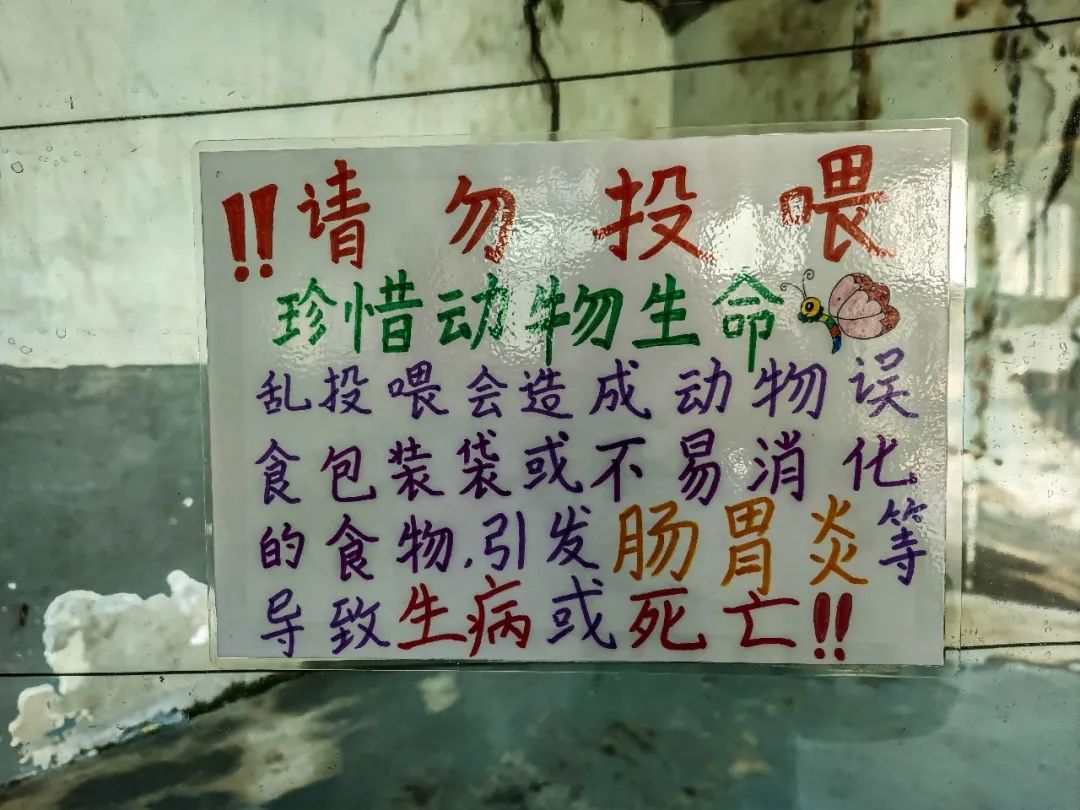 !!请勿投喂
珍惜动物生命
乱投喂会造成动物误
食包装袋或不易消化
的食物,引发肠胃炎等
导致生病或死亡!!